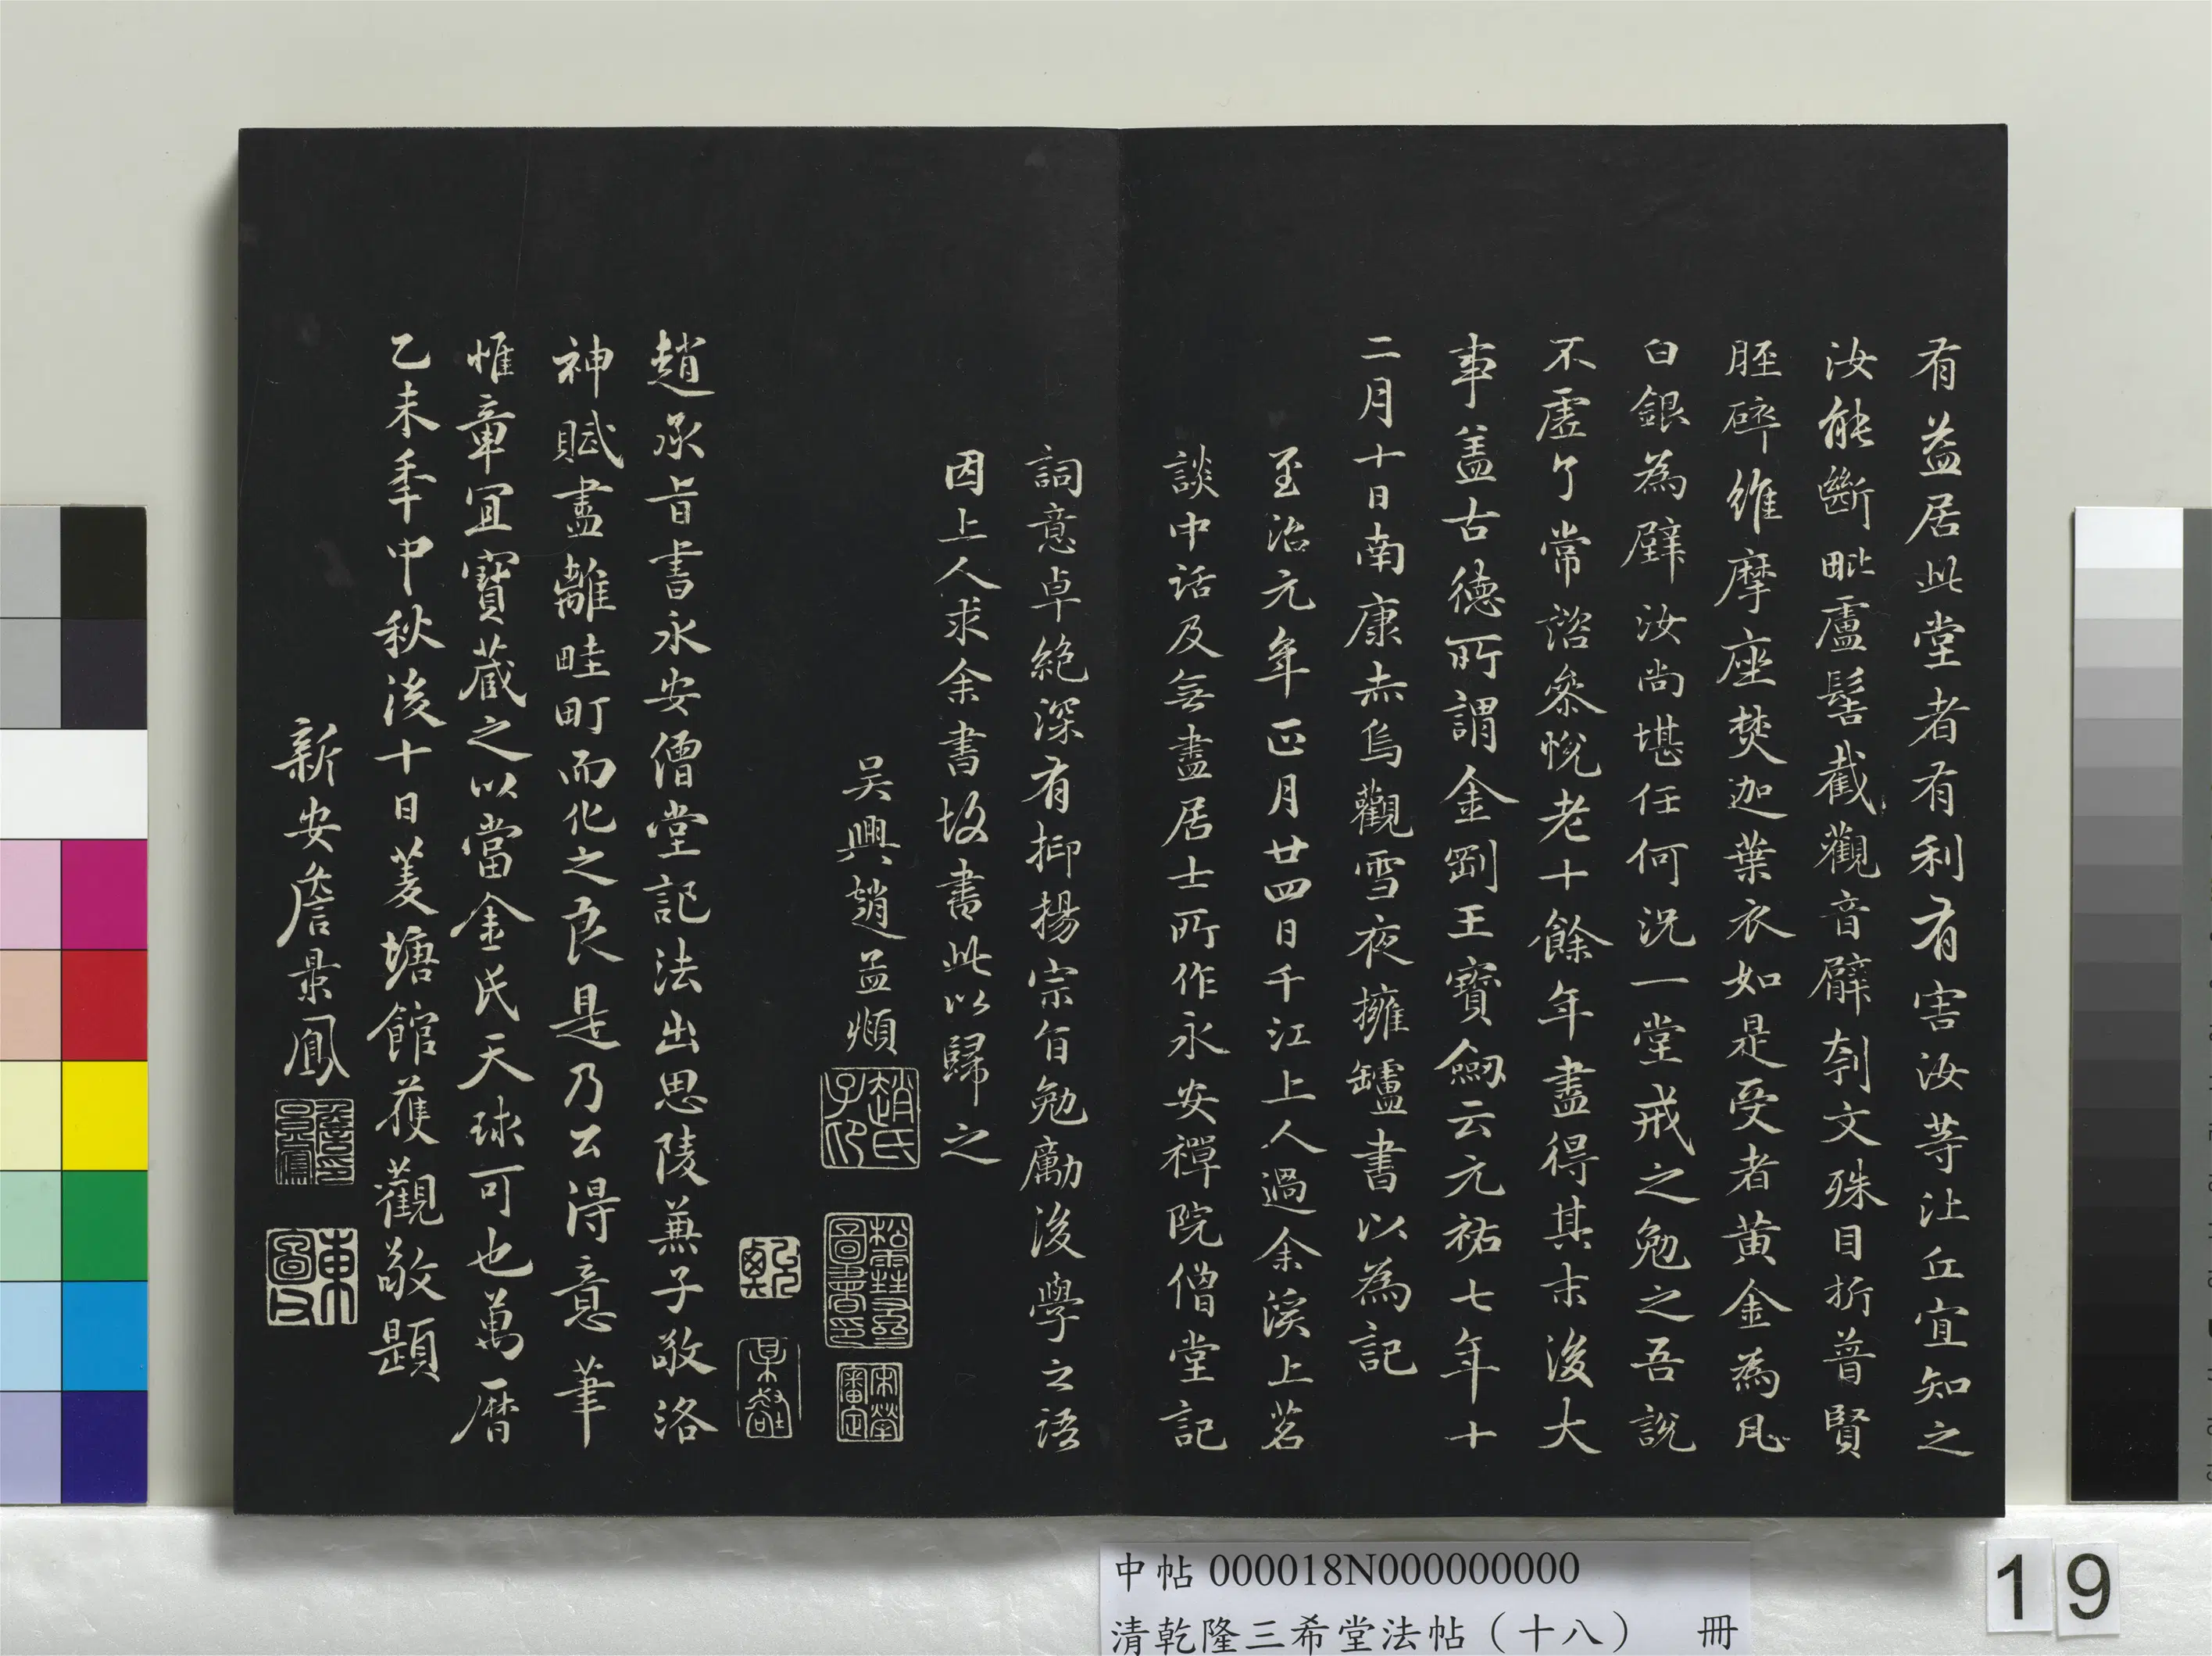 有益居此堂者有利有害汝等比丘宜知之
汝能斷毗盧髻截觀音臂刳文殊目折普賢
脛碎維摩座焚迦葉衣如是受者黃金為凡
白銀為壁汝尚堪任何況一堂戒之勉之吾說
不虛了常諮參悅老十餘年盡得其末後大
事盖古德所謂金剛王寶劔云元祐七年十
二月十日南康赤烏觀雪夜擁罏書以為記
至治元年正月廿四日千江上人過余溪上茗
談中話及無盡居士所作永安禪院僧堂記
詞意卓絕深有抑揚宗旨勉勵後學之語
因上人求余書故書此以歸之
吳興趙孟頫
趙氏子印
松雪齋圖書印
宋犖審定
乾
趙承旨書永安僧堂記法出思陵蕪子敬洛
神賦盡離畦町而化之良是乃公得意筆
惟章宜寶藏之以當金氏天球可也萬曆
乙未年中秋後十日菱塘館獲觀敬題
新安詹景鳳
東圖
中帖 000018N000000000
清乾隆三希堂法帖（十八） 冊
19